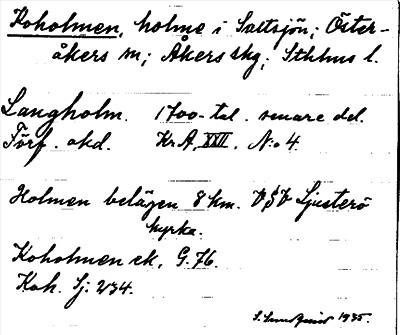 Koholmen, holme i Saltsjön; Öster-
åkers sn; Åkers skg; Sthlms l.
Langholm. 1700-tal. senare del.
Förf. okd. Kr.A. XXII. N:o 4.
Holmen belägen 8 km. VSV Ljusterö
kyrka.
Koholmen ek. G. 76.
Koh. Sj. 234.
S. Lundquist 1935.